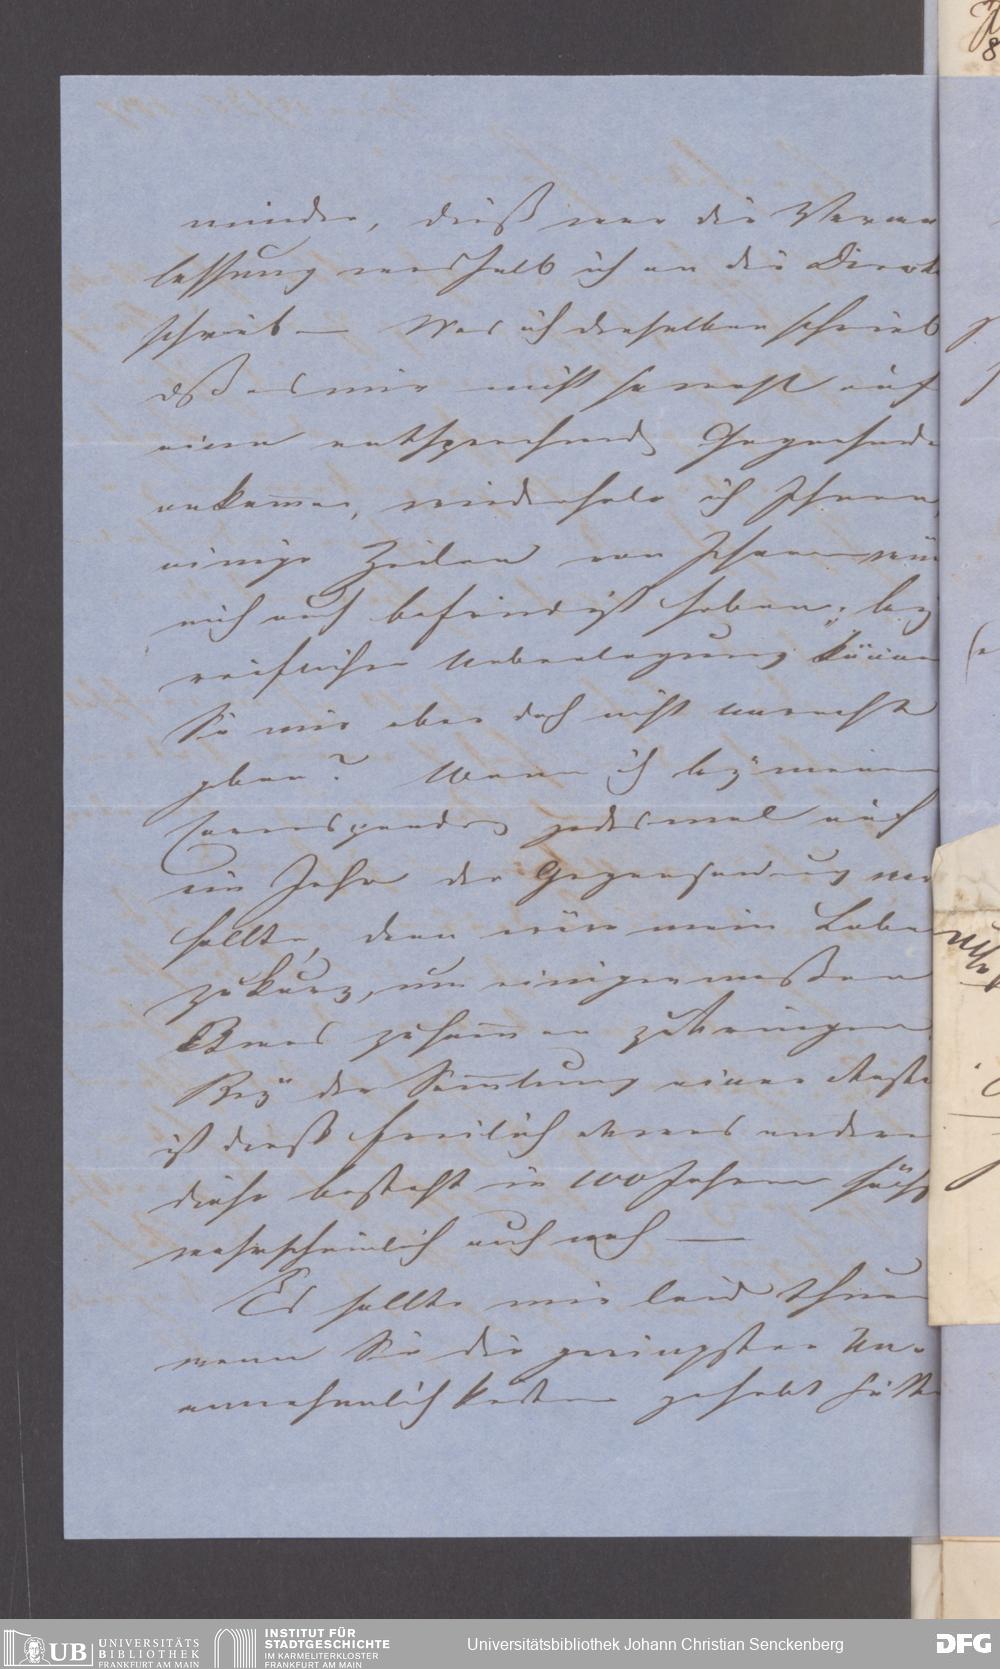 minder, dieß war die Veran
lassung weshalb ich an die Direkt
schrieb — Was ich derselben schrieb
dß es mir nicht so wohl auf
eine entsprechend Gegensend
ankomme, wiederhole ich Ihnen,
einige Zeilen von Ihnen wür
mich auch befriedigt haben; bey
reiflicher Ueberlegung können
Sie mir aber doch nicht unrecht
geben? Wenn ich bey meinen
Correspondenz jedesmal auf
ein Jahr der Gegensendung war
sollte, dann wäre mein Leben
zu kurz, um einigermassen
Etwas zusammen zu bringen
Bey der Sammlung einer Anstal
ist dieß freilich etwas anderes
diese besteht in 100 Jahren höchst
wahrscheinlich auch noch —
Es sollte mir leid thuen
wenn Sie die geringsten Un-
annehmlichkeiten gehabt hätte
UB UNIVERSITÄTS
BIBLIOTHEK
FRANKFURT AM MAIN
INSTITUT FÜR
STADTGESCHICHTE
IM KARMELITERKLOSTER
FRANKFURT AM MAIN
Universitätsbibliothek Johann Christian Senckenberg
DFG